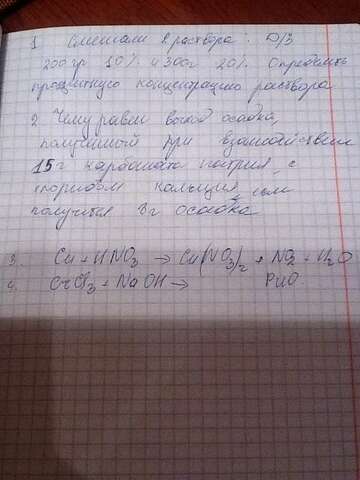 1 Смешали 2 раствора. Д/З
200 гр 10% и 300г 20% Определить
процентную концентрацию раствора
2 Чему равен выход осадка,
полученный при взаимодействии
15г карбоната натрия с
хлоридом кальция, если
получится 8г осадка
3. Cu + HNO3 → Cu(NO3)2 + NO2 + H2O
4. CrCl3 + NaOH → РИО